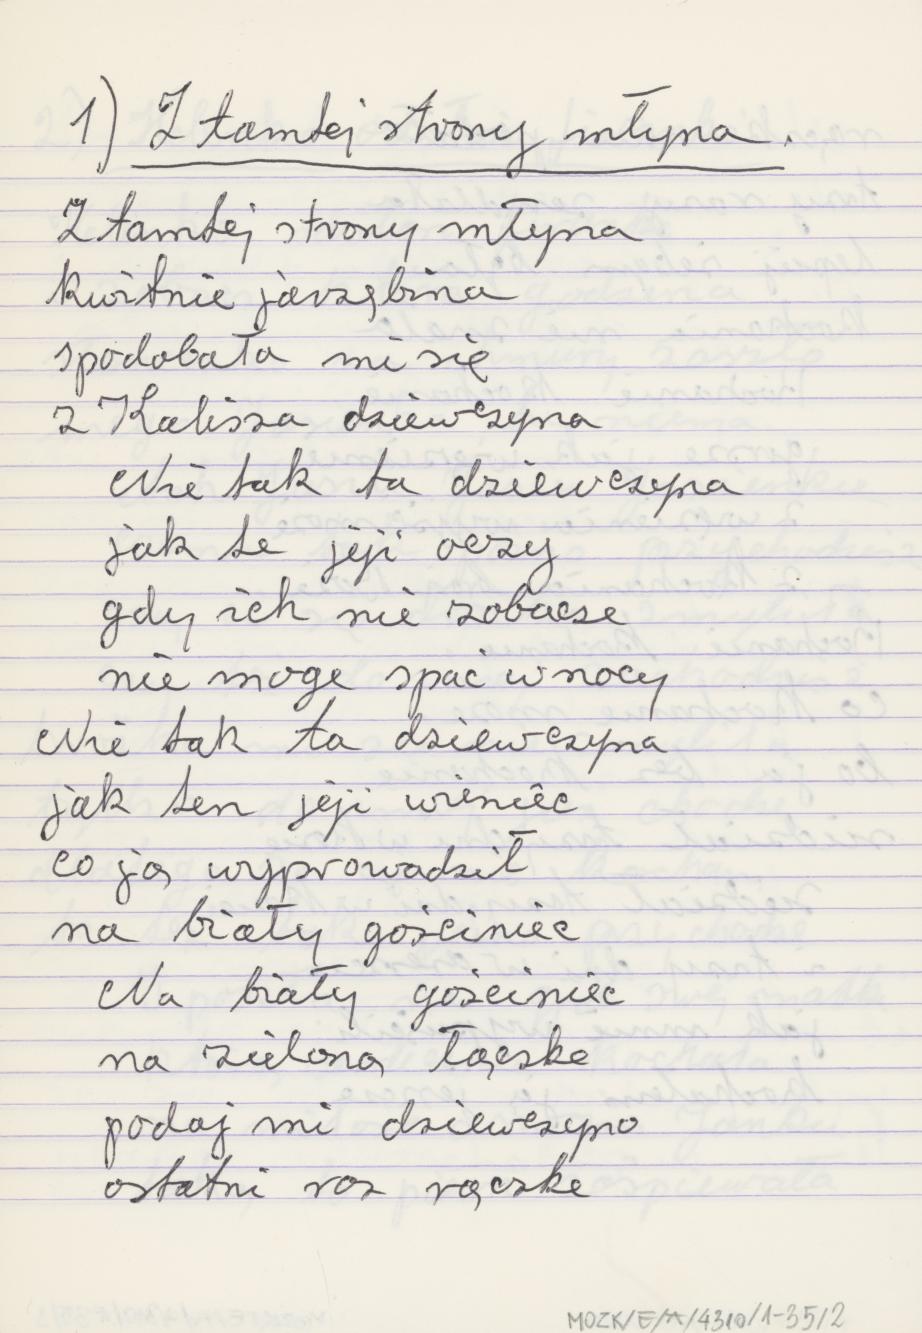 1) Z tamtej strony młyna.
Z tamtej strony młyna
kwitnie jarzębina
spodobała mi się
z Kalisza dziewczyna
Nie tak ta dziewczyna
jak te jeji oczy
gdy ich nie zobacze
nie moge spać w nocy
Nie tak ta dziewczyna
jak ten jeji wieniec
co ją wyprowadził
na biały gościniec
Na biały gościniec
na zieloną łączke
podaj mi dziewczyno
ostatni roz rączke
MOZK/E/A/4310/1-35/2